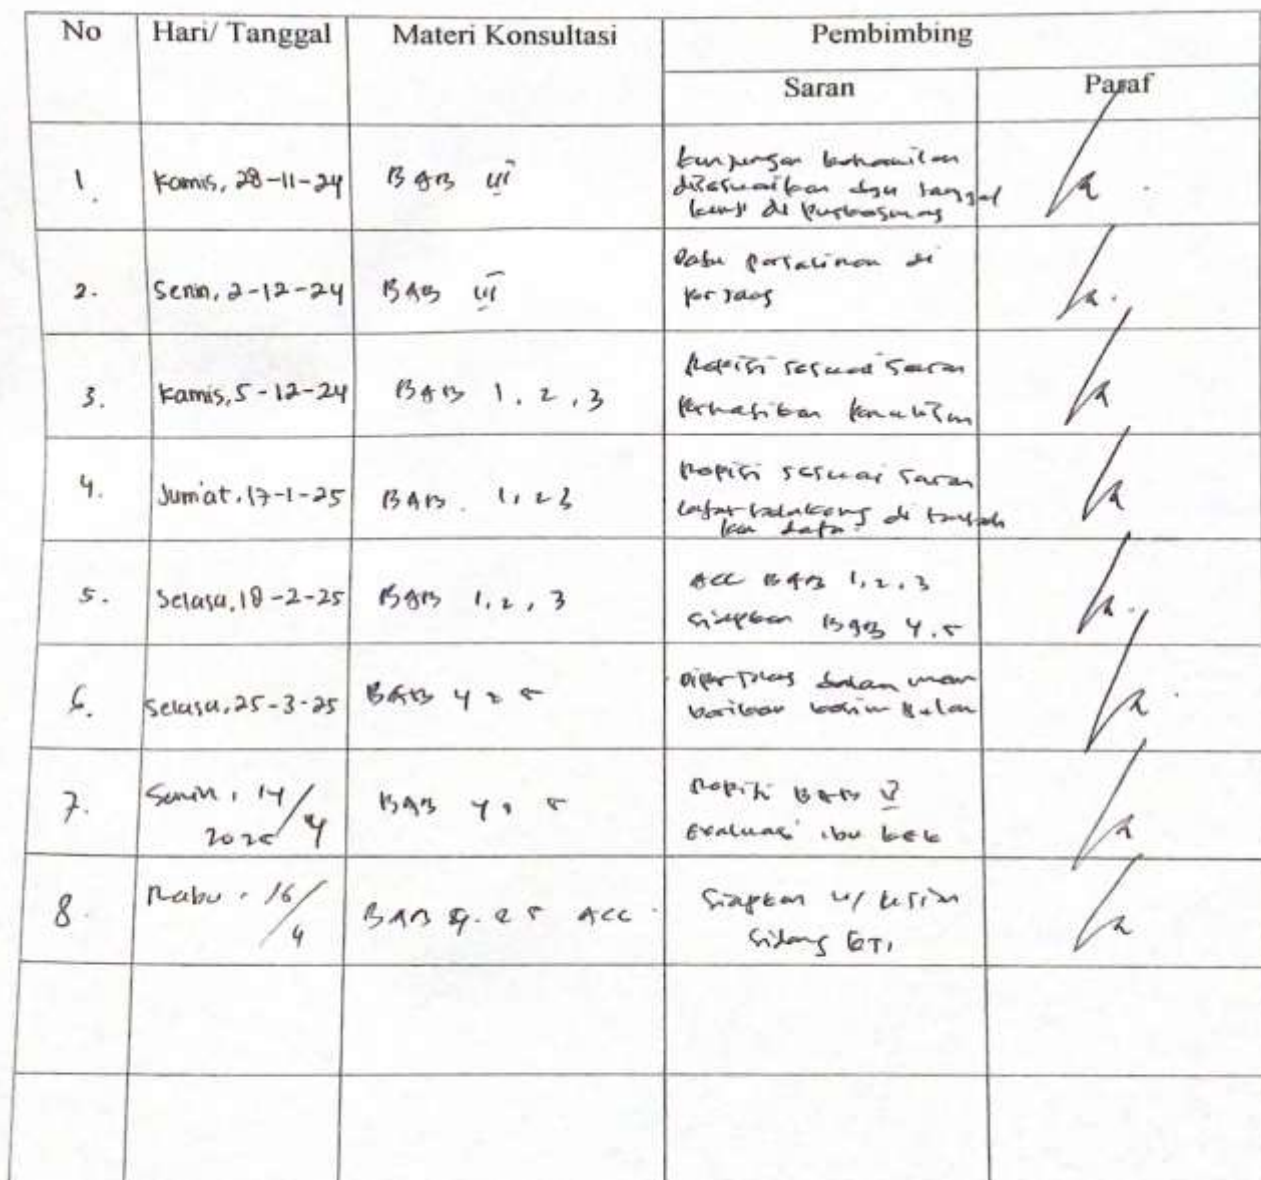 No Hari/ Tanggal Materi Konsultasi Pembimbing
Saran Paraf
1. Kamis, 28-11-24 BAB III kunjungan kehamilan
disesuaikan dgn tanggal
kunj di Puskesmas
2. Senin, 2-12-24 BAB III Data persalinan di
perjelas
3. Kamis, 5-12-24 BAB 1, 2, 3 Revisi sesuai saran
4. Jum'at, 17-1-25 BAB 1, 2 3 Revisi sesuai saran
latar belakang di tambah
kan data
5. Selasa, 18-2-25 BAB 1, 2, 3 ACC BAB 1, 2, 3
siapkan BAB 4, 5
6. Selasa, 25-3-25 BAB 4 2 5 diperjelas dalam mem
berikan
7. Senin, 14/4 2025 BAB 4, 5 Revisi BAB V
Evaluasi ibu kek
8. Rabu, 16/4 BAB 4. 2 5 ACC Siapkan u/
sidang KTI